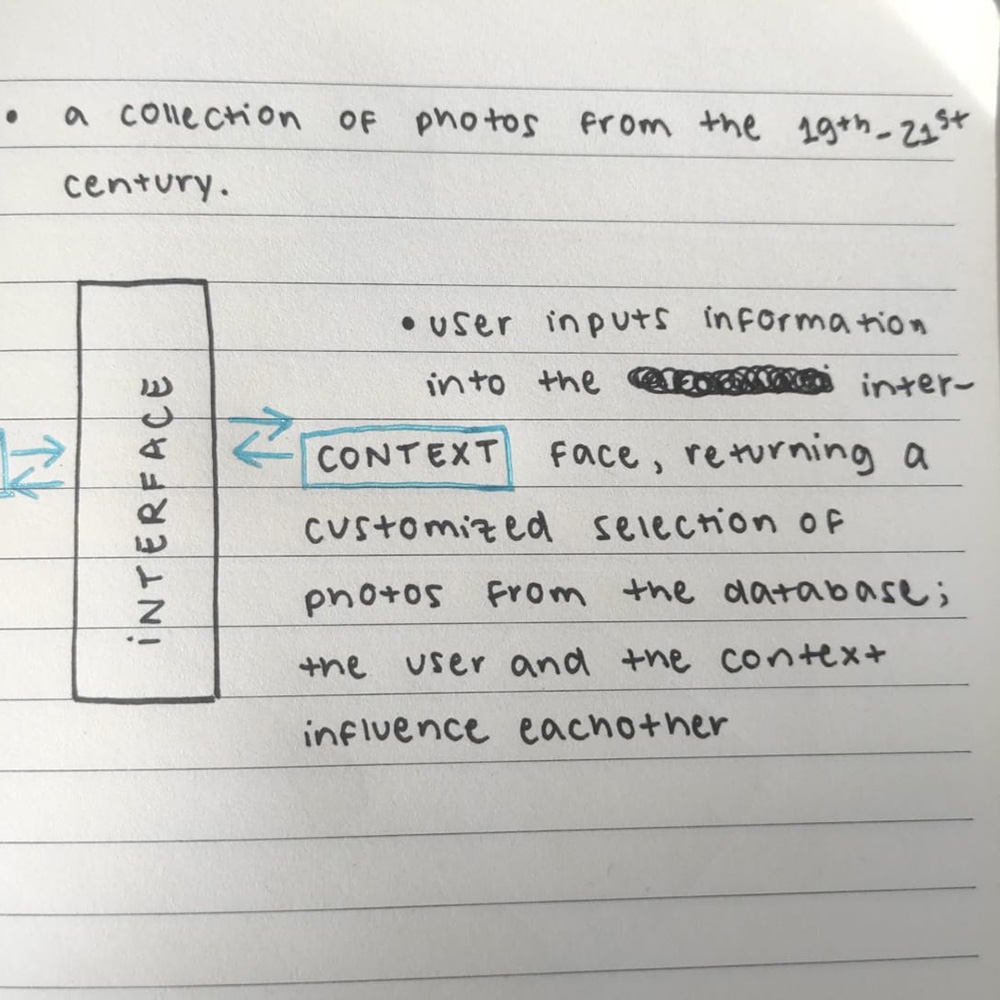 • a collection of photos from the 19th-21st
century.
INTERFACE
• user inputs information
into the inter-
CONTEXT face, returning a
customized selection of
photos from the database;
the user and the context
influence eachother